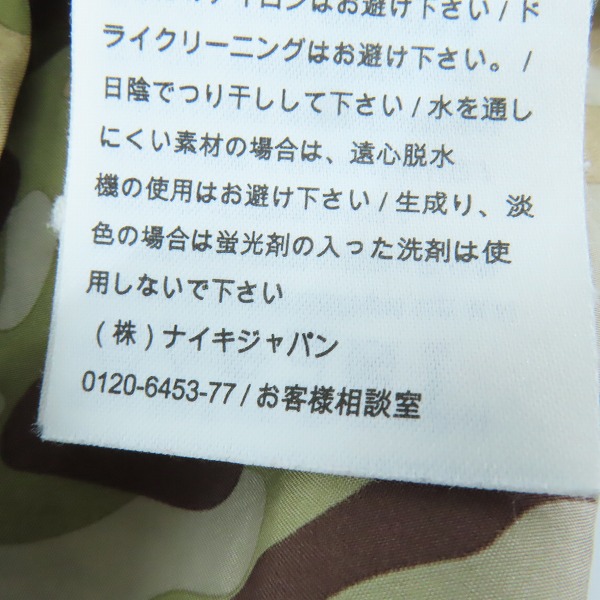 アイロンはお避け下さい / ド
ライクリーニングはお避け下さい。 /
日陰でつり干しして下さい / 水を通し
にくい素材の場合は、遠心脱水
機の使用はお避け下さい / 生成り、淡
色の場合は蛍光剤の入った洗剤は使
用しないで下さい
(株) ナイキジャパン
0120-6453-77 / お客様相談室